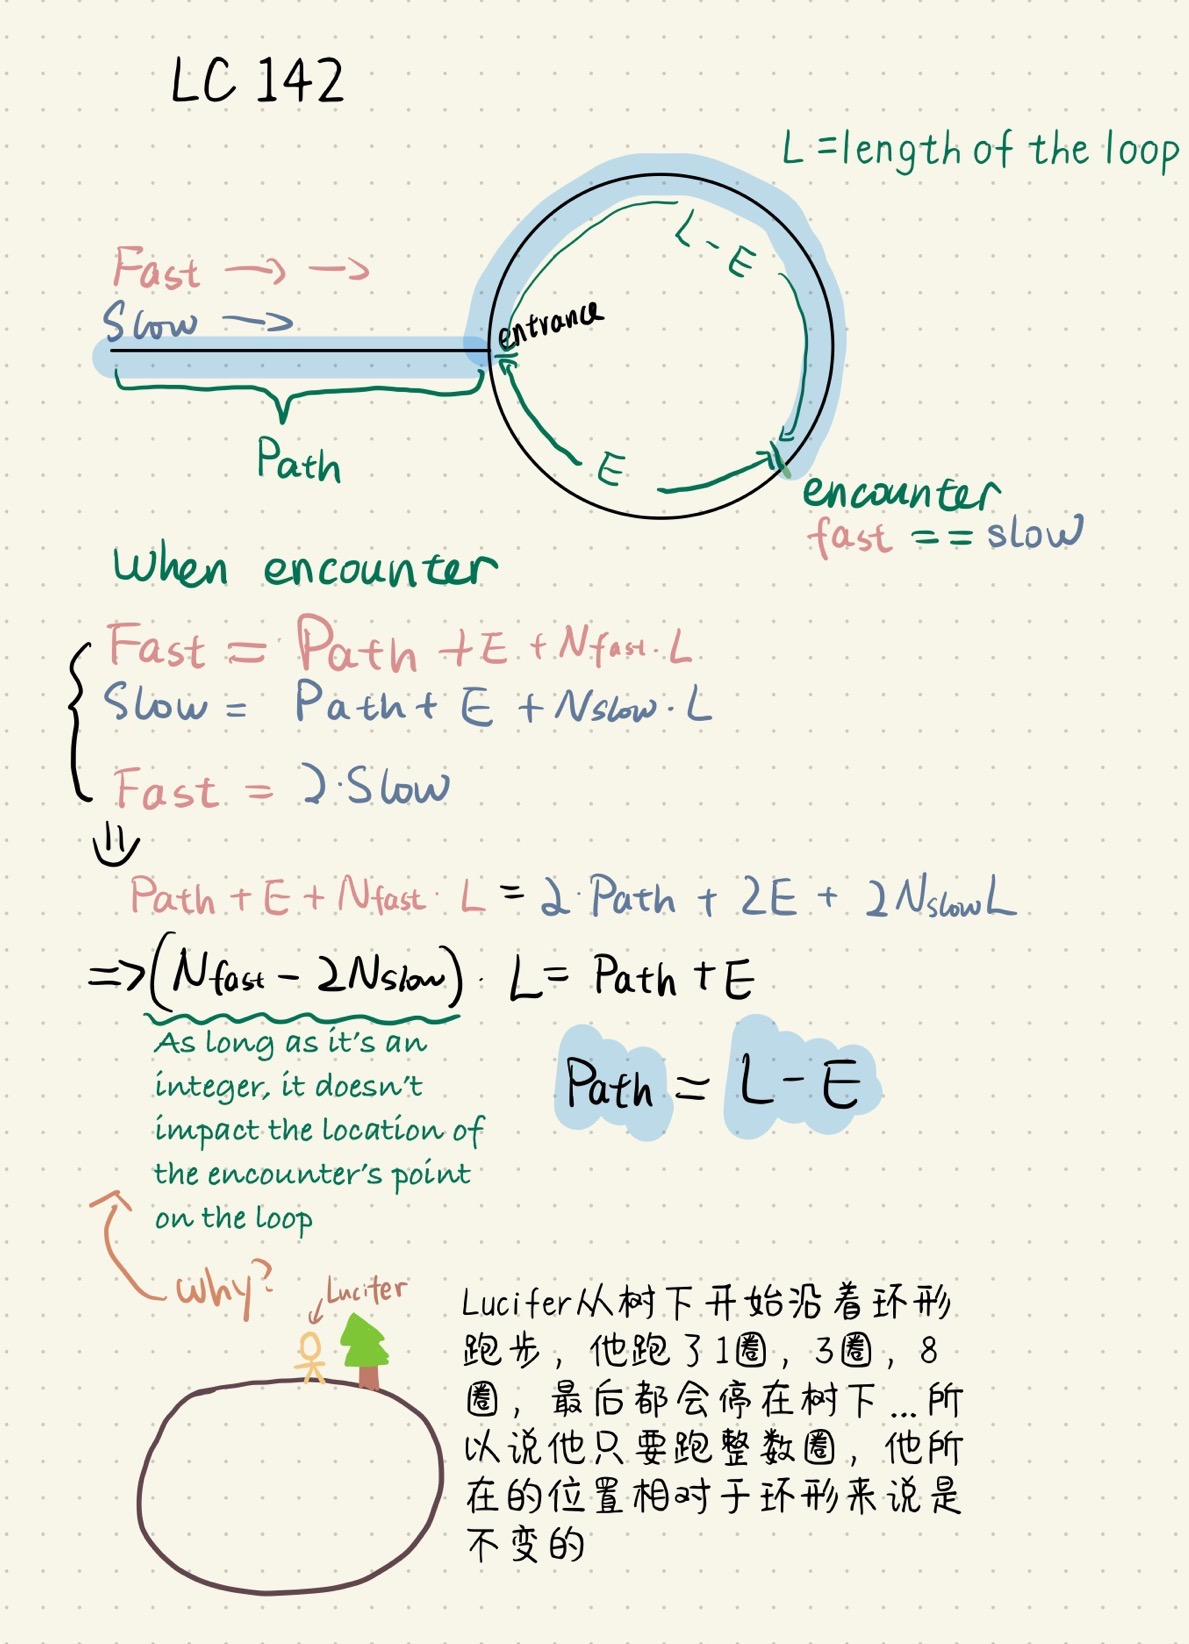 LC 142
L = length of the loop
L - E
Fast → →
Slow →
entrance
Path
E
encounter
fast == slow
When encounter
Fast = Path + E + Nfast · L
Slow = Path + E + Nslow · L
Fast = 2·Slow
Path + E + Nfast · L = 2·Path + 2E + 2NslowL
=> (Nfast - 2Nslow) · L = Path + E
As long as it's an
integer, it doesn't
impact the location of
the encounter's point
on the loop
Path = L - E
why?
Lucifer
Lucifer从树下开始沿着环形
跑步，他跑了1圈，3圈，8
圈，最后都会停在树下...所
以说他只要跑整数圈，他所
在的位置相对于环形来说是
不变的